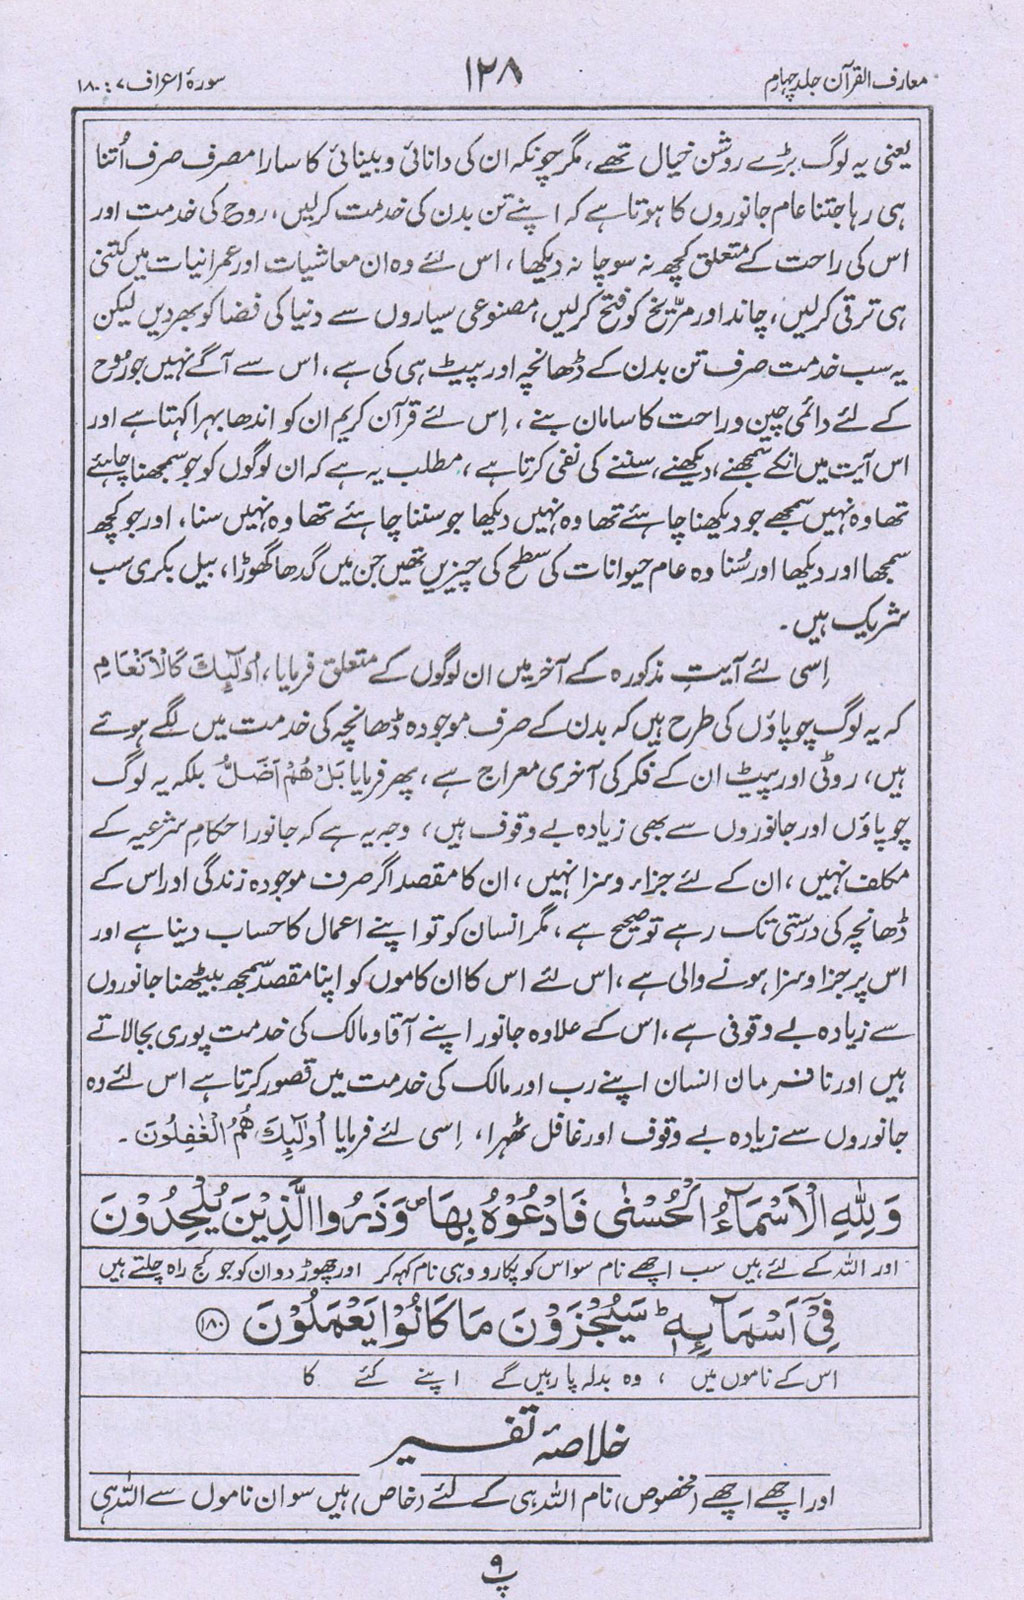 معارف القرآن جلد چہارم
۱۲۸
سورۂ اعراف ۷ : ۱۸۰
یعنی یہ لوگ بڑے روشن خیال تھے، مگر چونکہ ان کی دانائی و بینائی کا سارا مصرف صرف اُتنا
ہی رہا جتنا عام جانوروں کا ہوتا ہے کہ اپنے تن بدن کی خدمت کرلیں، روح کی خدمت اور
اس کی راحت کے متعلق کچھ نہ سوچا نہ دیکھا، اس لئے وہ ان معاشیات اور عمرانیات میں کتنی
ہی ترقی کرلیں، چاند اور مرّیخ کو فتح کرلیں، مصنوعی سیاروں سے دنیا کی فضا کو بھردیں لیکن
یہ سب خدمت صرف تن بدن کے ڈھانچہ اور پیٹ ہی کی ہے، اس سے آگے نہیں جو روح
کے لئے دائمی چین و راحت کا سامان بنے، اِس لئے قرآن کریم ان کو اندھا بہرا کہتا ہے اور
اس آیت میں انکے سمجھنے، دیکھنے، سننے کی نفی کرتا ہے، مطلب یہ ہے کہ ان لوگوں کو جو سمجھنا چاہئے
تھا وہ نہیں سمجھے جو دیکھنا چاہئے تھا وہ نہیں دیکھا جو سننا چاہئے تھا وہ نہیں سنا، اور جو کچھ
سمجھا اور دیکھا اور سُنا وہ عام حیوانات کی سطح کی چیزیں تھیں جن میں گدھا گھوڑا، بیل بکری سب
شریک ہیں۔
اِسی لئے آیتِ مذکورہ کے آخر میں ان لوگوں کے متعلق فرمایا، اُولٰٓئِكَ كَالْاَنْعَامِ
کہ یہ لوگ چوپاؤں کی طرح ہیں کہ بدن کے صرف موجودہ ڈھانچہ کی خدمت میں لگے ہوئے
ہیں، روٹی اور پیٹ ان کے فکر کی آخری معراج ہے، پھر فرمایا بَلْ هُمْ اَضَلُّ بلکہ یہ لوگ
چوپاؤں اور جانوروں سے بھی زیادہ بے وقوف ہیں، وجہ یہ ہے کہ جانور احکامِ شرعیہ کے
مکلف نہیں، ان کے لئے جزاء و سزا نہیں، ان کا مقصد اگر صرف موجودہ زندگی اور اس کے
ڈھانچہ کی درستی تک رہے تو صحیح ہے، مگر انسان کو تو اپنے اعمال کا حساب دینا ہے اور
اس پر جزا و سزا ہونے والی ہے، اس لئے اس کا ان کاموں کو اپنا مقصد سمجھ بیٹھنا جانوروں
سے زیادہ بے وقوفی ہے، اس کے علاوہ جانور اپنے آقا و مالک کی خدمت پوری بجالاتے
ہیں اور نافرمان انسان اپنے رب اور مالک کی خدمت میں قصور کرتا ہے اس لئے وہ
جانوروں سے زیادہ بے وقوف اور غافل ٹھہرا، اِسی لئے فرمایا اُولٰٓئِكَ هُمُ الْغٰفِلُوْنَ۔
وَلِلّٰهِ الْاَسْمَآءُ الْحُسْنٰى فَادْعُوْهُ بِهَا ۠ وَذَرُوا الَّذِيْنَ يُلْحِدُوْنَ
اور اللہ کے لئے ہیں سب اچھے نام سو اس کو پکارو وہی نام کہہ کر اور چھوڑ دو ان کو جو کج راہ چلتے ہیں
فِيْٓ اَسْمَآىِٕهٖ ؕ سَيُجْزَوْنَ مَا كَانُوْا يَعْمَلُوْنَ ۱۸۰
اس کے ناموں میں، وہ بدلہ پا رہیں گے اپنے کئے کا
خلاصۂ تفسیر
اور اچھے اچھے (مخصوص) نام اللہ ہی کے لئے (خاص) ہیں سو ان ناموں سے اللہ ہی
پ ۹